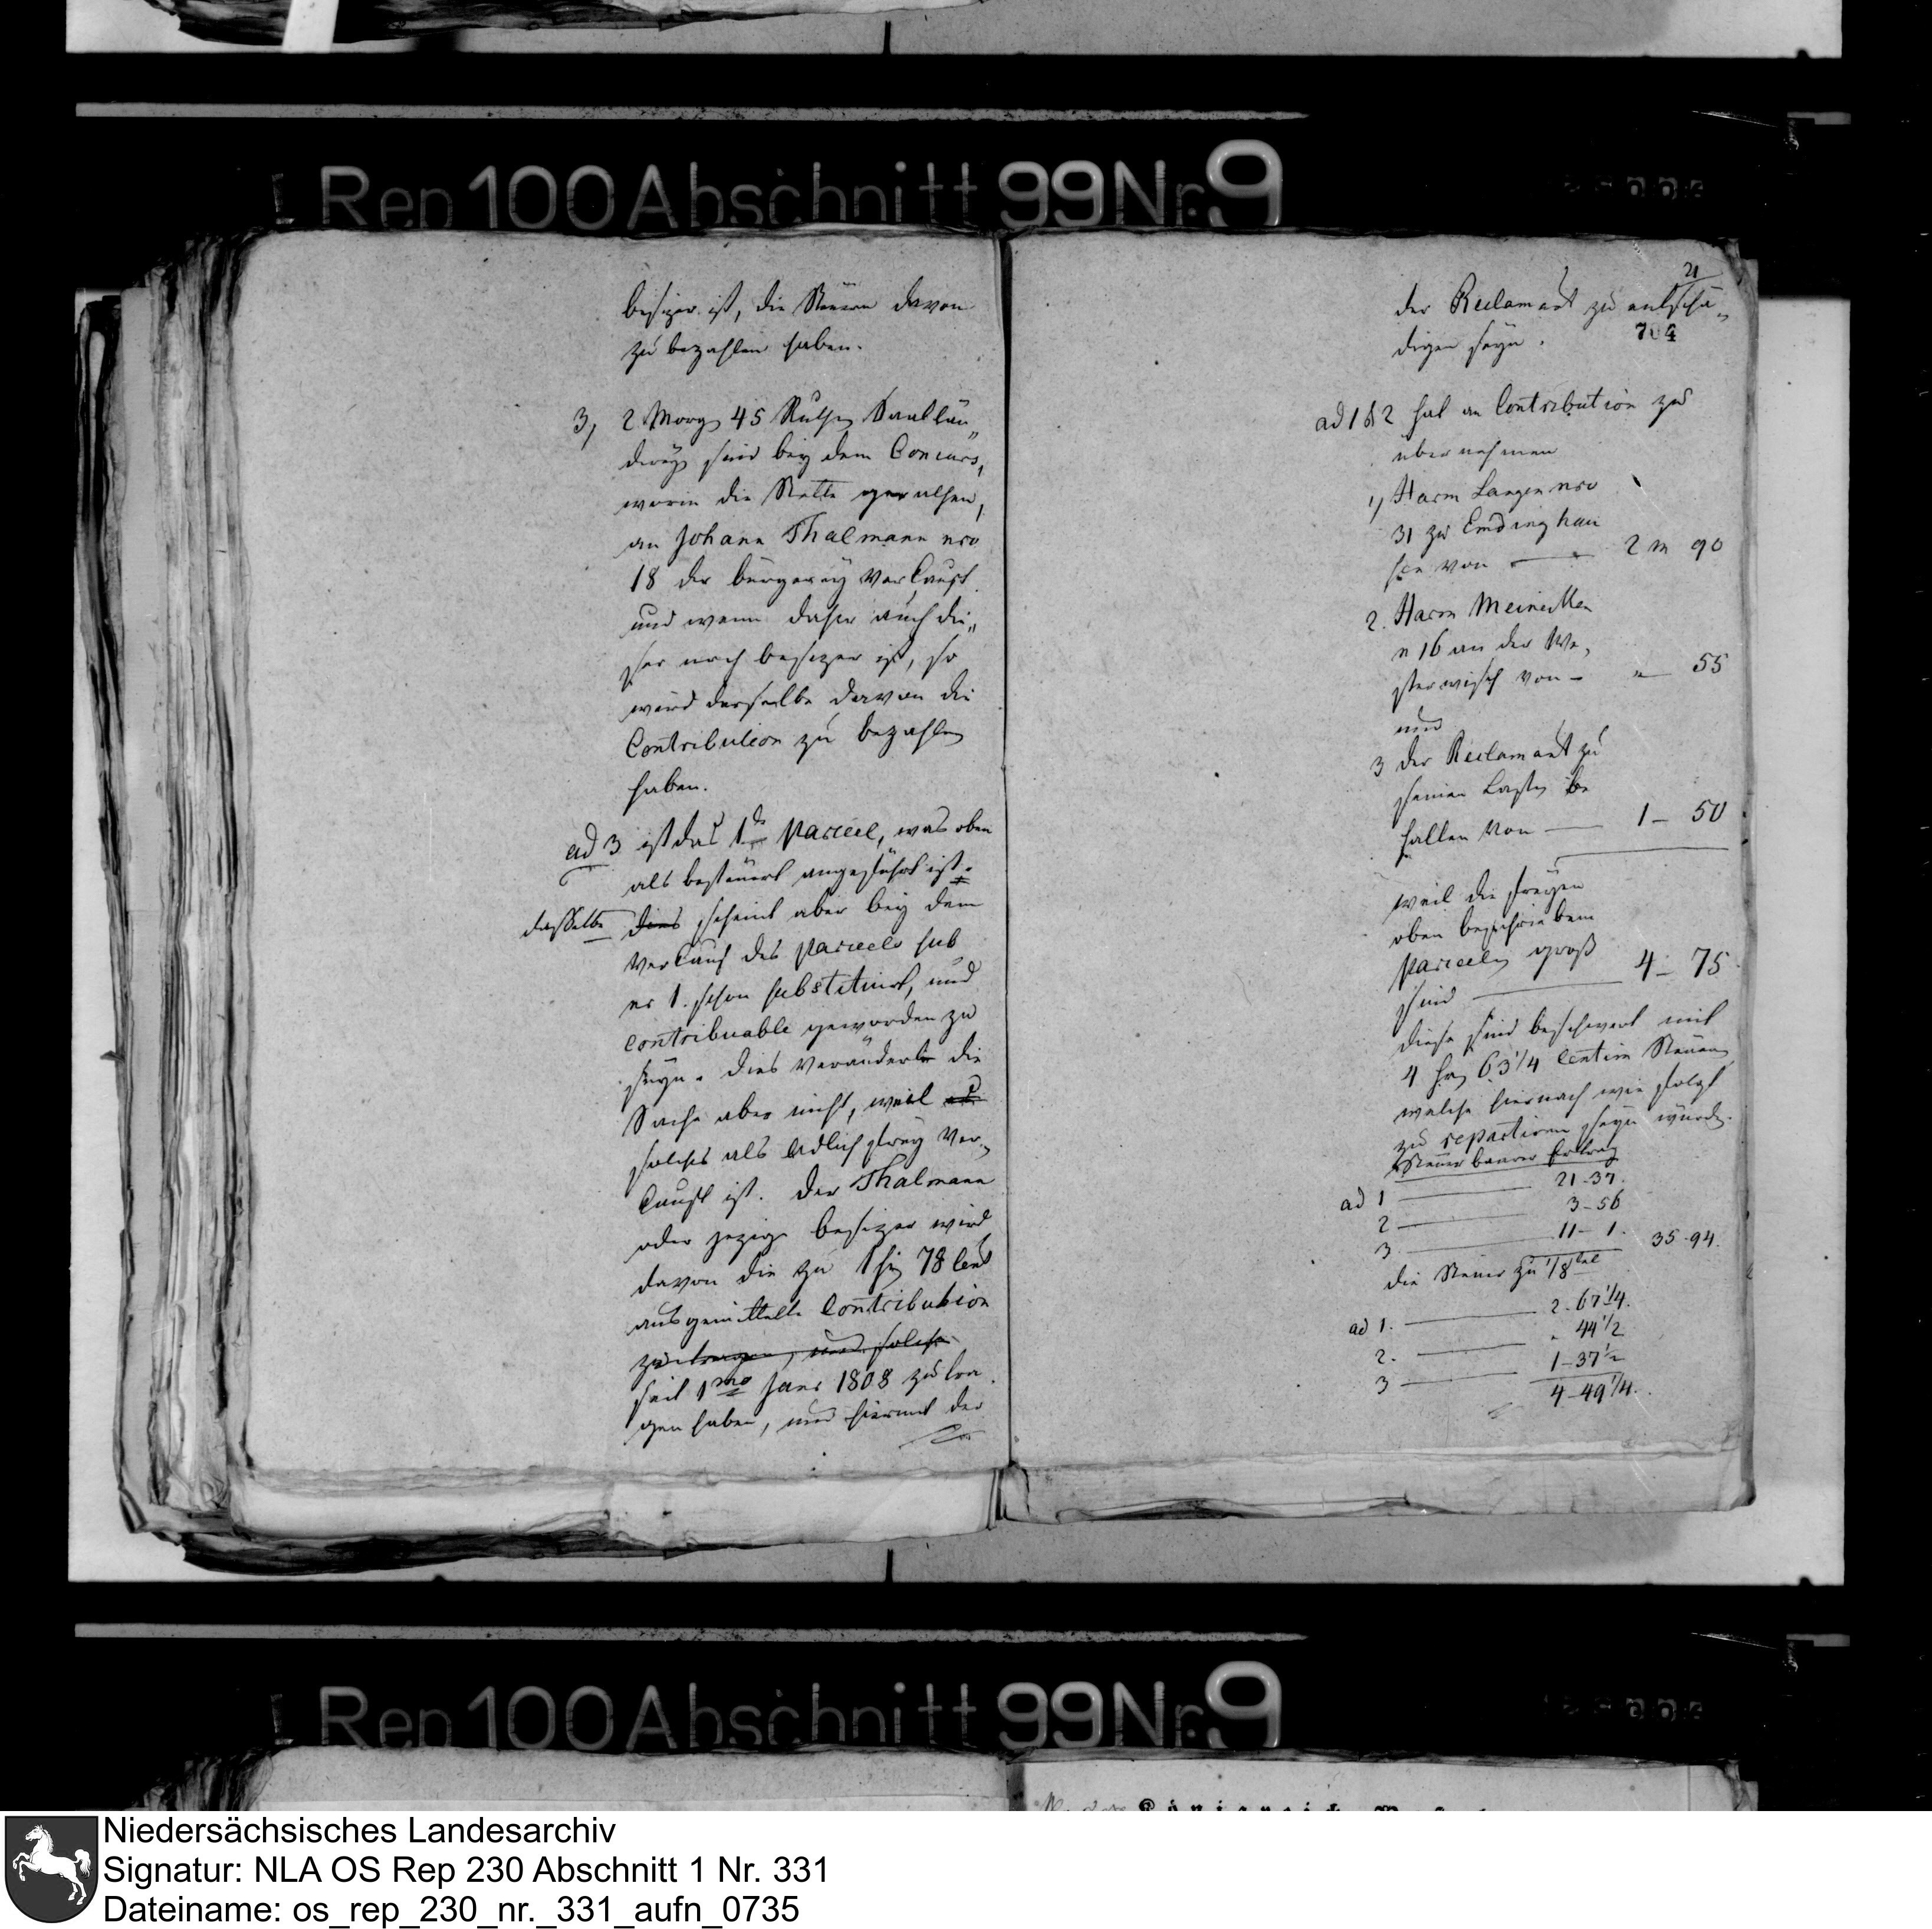 Rep 100 Abschnitt 99 Nr. 9
besizer ist, die Steuern davon
zu bezahlen haben.
3, 2 Morg 45 Ruthen Saatlän„
derey sind bey dem Concurs,
worin die Stette gerathen,
an Johann Thalmann nro
18 der bürgerey verkauft
und wenn daher auch die„
ser noch besizer ist, so
wird derselbe davon die
Contribution zu bezahlen
haben.
ad 3 ist das 1te Parceel, was oben
als besteuert angeführt ist.
dasselbe dies scheint aber bey dem
Verkauf des Parceels sub
nr 1. schon substituirt, und
contribuable geworden zu
seyn. Dies veränderte die
Sache aber nicht, weil es
solches als Adlich frey ver„
kauft ist. Der Thalmann
oder jezige besizer wird
davon die zu 1 fr 78 Cent
ausgemittelte Contribution
zu tragen, und solche
seit 1mo Janr 1808 zu tra
gen haben, und hiermit der
21
der Reclamant zu entschä„
704
digen seyn.
ad 1 & 2 hat an Contribution zu
übernehmen
1, Harm Langen nro
31 zu Emdinghau
sen von — 2 m 90
2. Harm Meineken
n 16 an der We,
sterwisch von — " — 55
und
3 der Reclamant zu
seinen Lasten be
halten von — 1 — 50
weil die freyen
oben beschriebene
Parceelen groß
sind — 4 — 75
diese sind beschwert mit
4 fr 63 1/4 Centim Steuern
welche hiernach wie folgt
zu repartiren seyn würde.
Steuerbaarer Ertrag
ad 1 — 21-37.
2 — 3-56
3. — 11- 1. 35-94.
die Steuer zu 1/8tel
ad 1. — 2-67 1/4.
2. — " 44 1/2
3 — 1-37 1/2
4-49 1/4.
Rep 100 Abschnitt 99 Nr. 9
Niedersächsisches Landesarchiv
Signatur: NLA OS Rep 230 Abschnitt 1 Nr. 331
Dateiname: os_rep_230_nr._331_aufn_0735